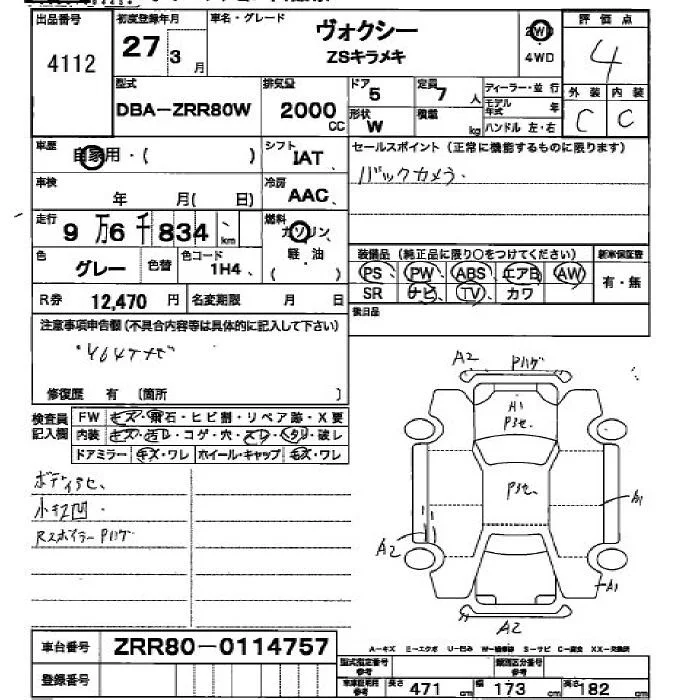 出品番号 初度登録年月 車名・グレード ヴォクシー 2WD 評価点
4112 27 3月 ZSキラメキ 4WD 4
型式 排気量 ドア 定員 ディーラー・並行 外装 内装
DBA-ZRR80W 2000CC 5 7人 モデル年式 年 C C
形状 積載
W kg ハンドル 左・右
車歴 自家用・( ) シフト IAT セールスポイント(正常に機能するものに限ります)
車検 年 月( 日) 冷房 AAC バックカメラ.
走行 9万6千834km 燃料 ガソリン
軽・油
( )
色 グレー 色替 色コード 1H4 装備品(純正品に限り○をつけてください) 新車保証書
PS PW ABS エアB AW 有・無
SR ナビ TV カワ
R券 12,470円 名変期限 月 日 後日品
注意事項申告欄(不具合内容等は具体的に記入して下さい)
修復歴 有 〔箇所 〕
検査員記入欄 FW キズ・飛石・ヒビ割・リペア跡・X要
内装 キズ・汚レ・コゲ・穴・スレ・ヘタリ・破レ
ドアミラー キズ・ワレ ホイール・キャップ キズ・ワレ
ボディ
小キズ凹
Rスポイラー Pハゲ
A2 Pハゲ
A1
Pヨセ、
Pヨセ、
A1
A2
A1
A2
車台番号 ZRR80-0114757
登録番号
A-キズ E-エクボ U-凹み W-補修跡 S-サビ C-腐食 XX-交換済
型式指定番号 参考 類別区分番号 参考
車車証記載 参考 長さ 471cm 幅 173cm 高さ 182cm